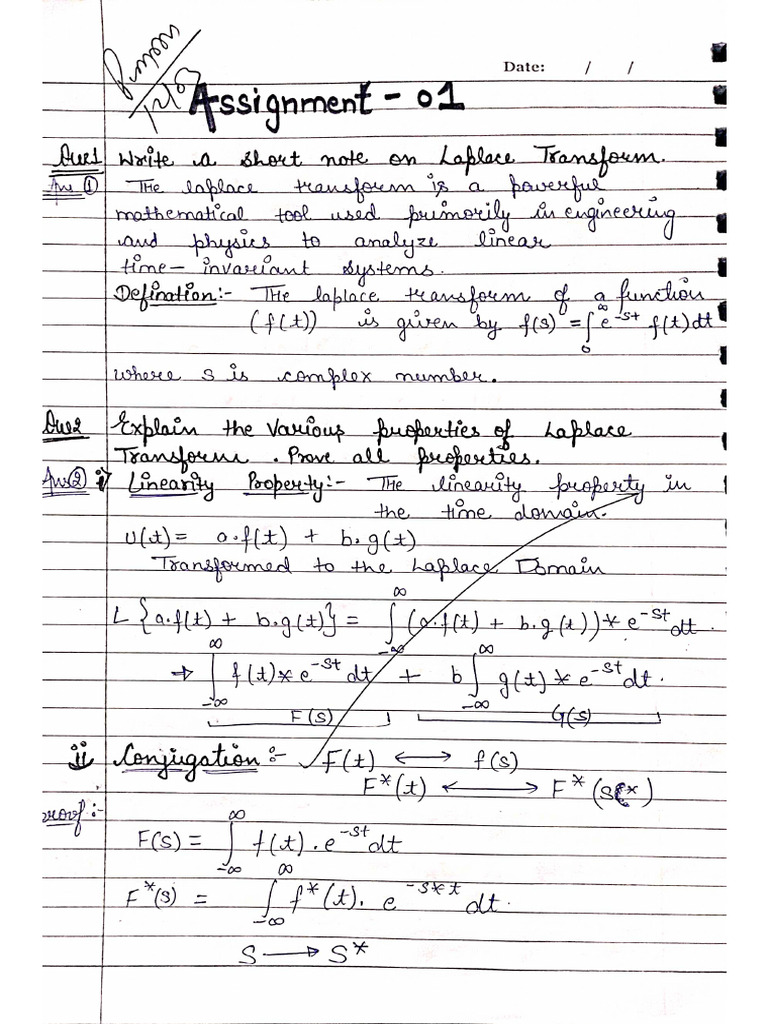 12/03
Date: / /
Assignment - 01
Que1 Write a short note on Laplace Transform.
Ans ① The laplace transform is a powerful
mathematical tool used primorily in engineering
and physics to analyze linear
time- invariant systems.
Defination:- The laplace transform of a function
(f(t)) is given by f(s) = ∫₀^∞ e^-st f(t) dt
where s is complex number.
Que2 Explain the various properties of Laplace
Transform. Prove all properties.
Ans ② i) Linearity Property:- The linearity property in
the time domain.
U(t) = a.f(t) + b.g(t)
Transformed to the Laplace Domain
L {a.f(t) + b.g(t)} = ∫_-∞^∞ (a.f(t) + b.g(t)) * e^-st dt.
→ ∫_-∞^∞ f(t) * e^-st dt + b ∫_-∞^∞ g(t) * e^-st dt.
F(s) G(s)
ii Conjugation:- F(t) ⟷ f(s)
F*(t) ⟷ F*(s*)
proof:-
F(s) = ∫_-∞^∞ f(t). e^-st dt
F*(s) = ∫_-∞^∞ f*(t). e^-s*t dt.
S → S*